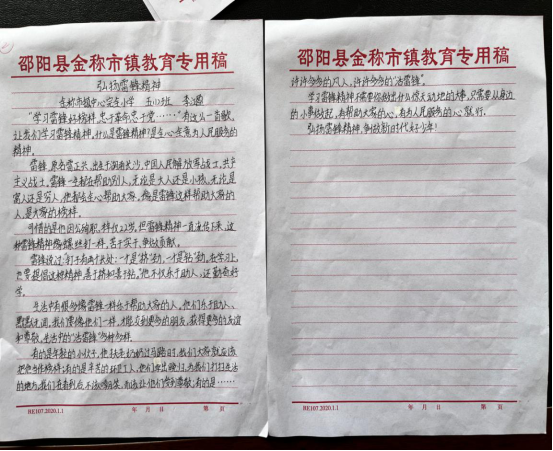 邵阳县金称市镇教育专用稿
弘扬雷锋精神
金称市镇中心完全小学 五(1)班 李
“学习雷锋好榜样,忠于革命忠于党……”有这么一首歌,
让我们学习雷锋精神。什么是雷锋精神?是全心全意为人民服务的
精神。
雷锋,原名雷正兴,出生于湖南长沙,中国人民解放军战士,共产
主义战士。雷锋一生都在帮助别人,无论是大人还是小孩,无论是
富人还是穷人,他都会全心帮助大家。
人,是大家的榜样。
可惜的是他因公殉职,年仅22岁,但雷锋精神一直流传下来,这
种雷锋精神像螺丝钉一样,苦干实干,争做贡献。
雷锋说过:钉子有两个长处:一个是“挤”劲,一个是“钻”劲。在学习上,
也要提倡这种精神,善于挤和善于钻。”他不仅乐于助人,还勤奋好
学。
生活中有很多像雷锋一样乐于帮助大家的人。他们乐于助人、
我们要像他们一样,才能交到更多的朋友,获得更多的友谊
和尊敬。生活中的“活雷锋”多种多样。
有的是年轻的小伙子,他扶老奶奶过马路时,我们大家就应该
把他当作榜样;有的是辛苦的环卫工人,他们早出晚归,为我们打扫生活
的地方,我们看到后不该嘲笑,而该让他们受到尊敬;有的是……
RE107.2020.1.1 年 月 日 第 页
邵阳县金称市镇教育专用稿
许许多多的凡人,许许多多的“活雷锋”。
学习雷锋精神不需要你做出什么惊天动地的大事,只需要从身边
的小事做起,有帮助大家的心,有为人民服务的心就行。
弘扬雷锋精神,争做新时代好少年!
RE107.2020.1.1 年 月 日 第 页